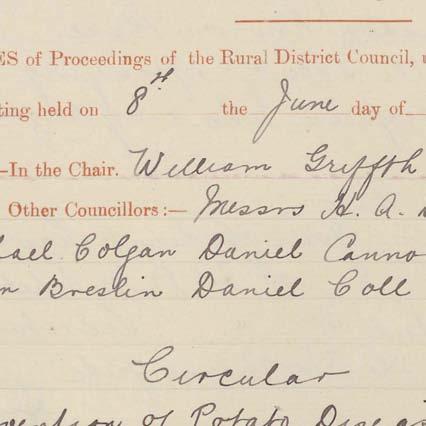 ES of Proceedings of the Rural District Council, u
ting held on 8th the June day of
—In the Chair. William Griffith
Other Councillors:— Messrs H. A.
hael Colgan Daniel Canno
n Breslin Daniel Coll
Circular
vention of Potato Disea